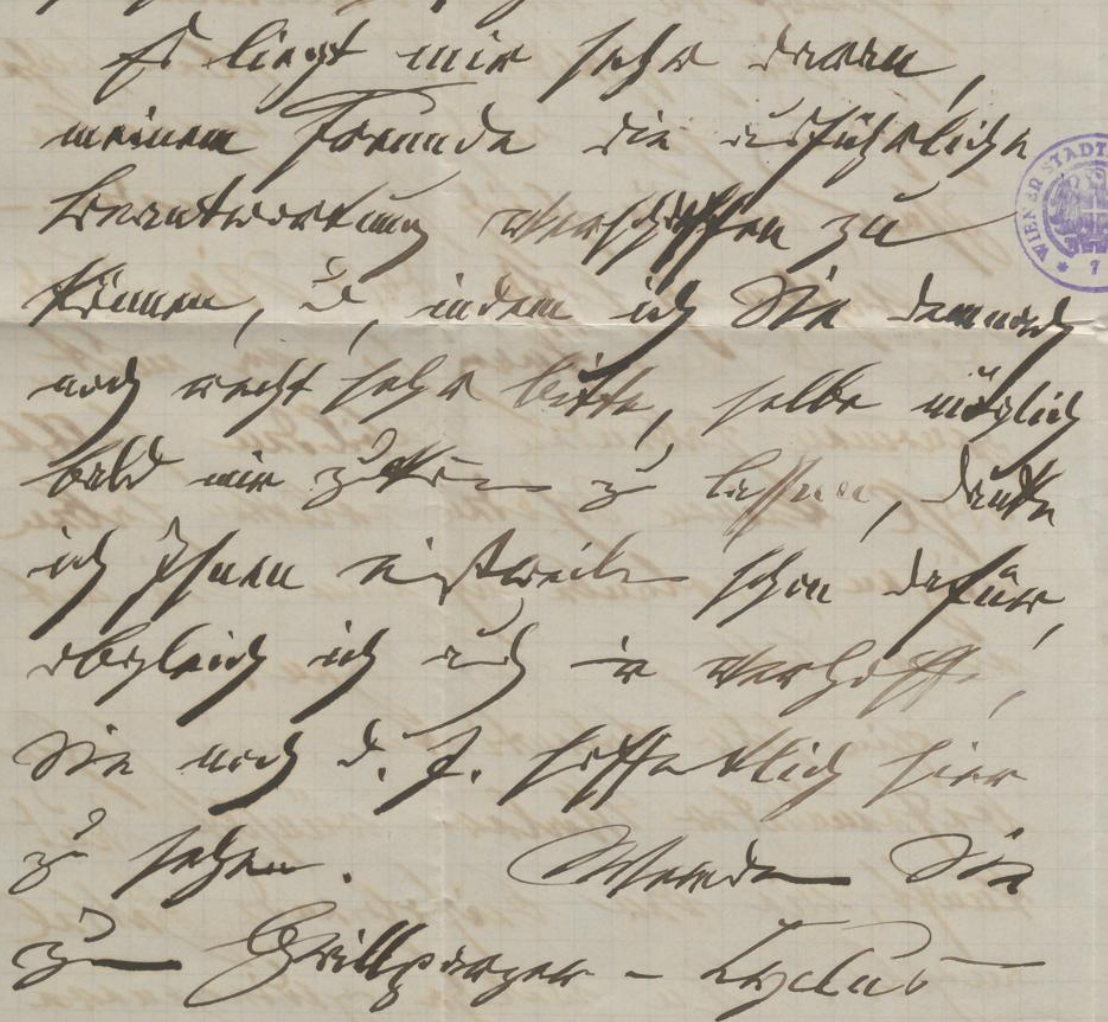 Es liegt mir sehr daran,
meinem Freunde die ausführliche
Beantwortung verschaffen zu
können, u, indem ich Sie demnach
noch recht sehr bitte, selbe möglich
bald mir zukommen zu lassen, danke
ich Ihnen einstweilen schon dafür,
obgleich ich auch verhoffe,
Sie noch d. J. hoffentlich hier
zu sehen. Werden Sie
zum Grillparzer-Cyclus
WIENER STADT